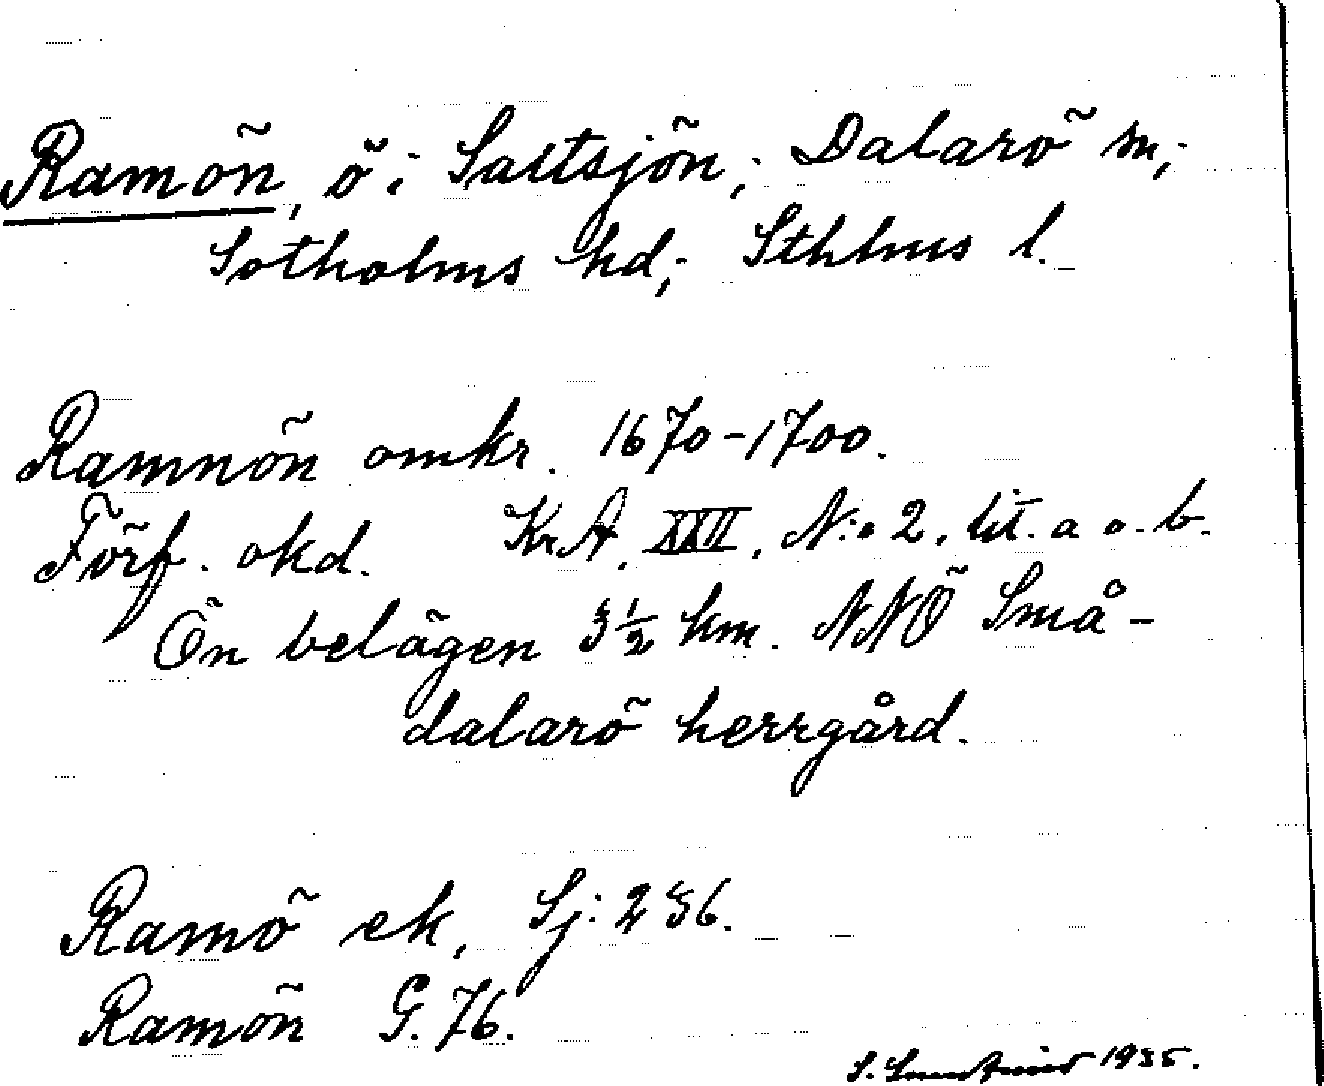 Ramön, ö i Saltsjön; Dalarö sn;
Sotholms hd; Sthlms l.
Ramnön omkr. 1670-1700.
Förf. okd. KrA. XXII. N:o 2. lit. a o. b.
Ön belägen 3½ km. NNÖ Små-
dalarö herrgård.
Ramö ek, Sj: 236.
Ramön G. 76.
S. 1935.